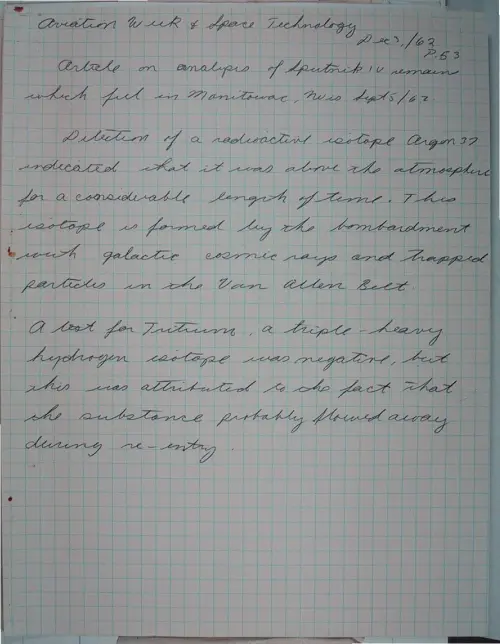 Aviation Week & Space Technology
Dec 3, /62
P. 53
Article on analysis of Sputnik IV remain
which fell in Manitowac, Wis Sept 5/62.
Detection of a radioactive isotope Argon 37
indicated that it was above the atmosphere
for a considerable length of time. This
isotope is formed by the bombardment
with galactic cosmic rays and trapped
particles in the Van Allen Belt.
A test for Tritium, a triple-heavy
hydrogen isotope was negative, but
this was attributed to the fact that
the substance probably flowed away
during re-entry